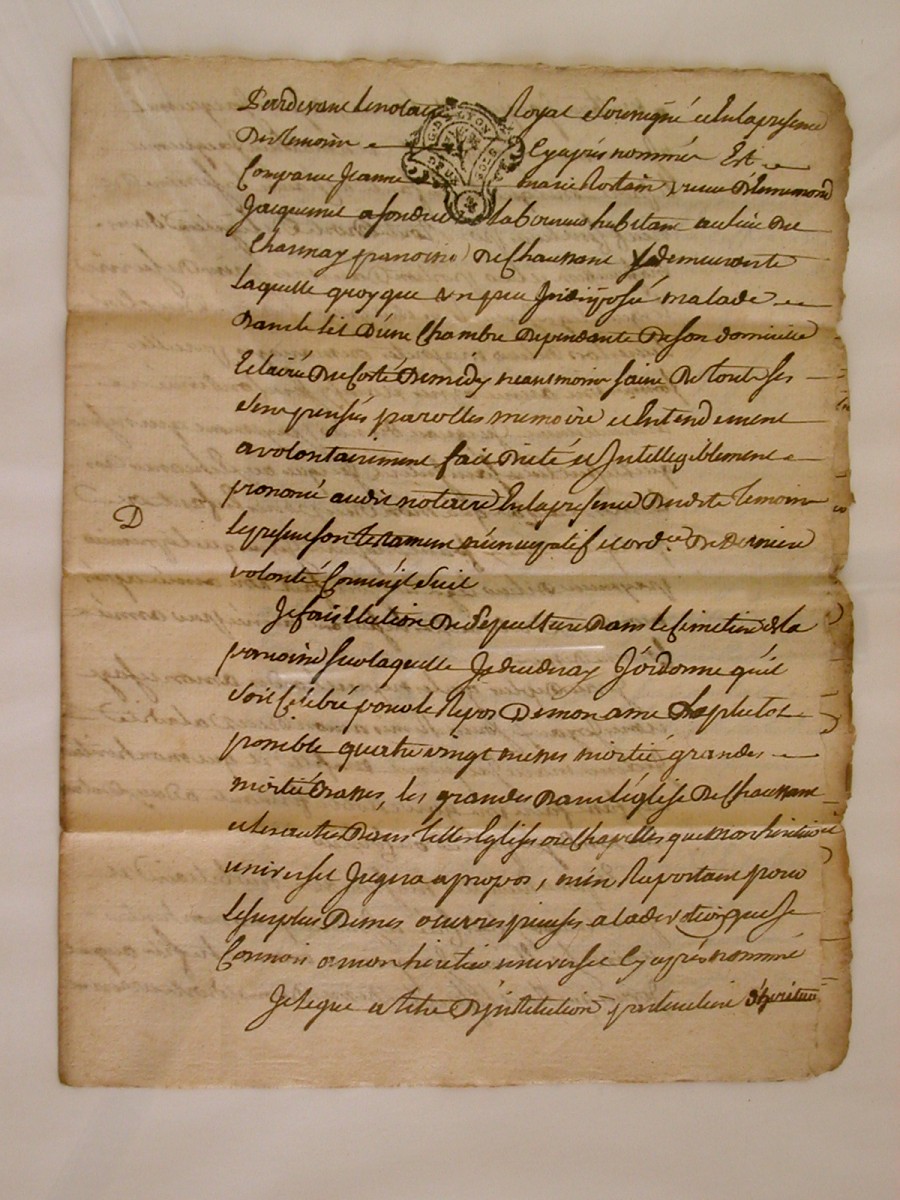 Pardevant le notaire Royal Soussigné et en la presence
Des temoins Cy apres nommés Est
Comparue Jeanne marie Rostain veuve d'Ennemond
Jacquemet a fondu Laboureur habitant au lieu de
Charnay paroisse De Chaussant y demeurante
Laquelle quoyque un peu Indisposée malade
Dans le lit D'une Chambre Dependante De son domicille
Eclairée Du Costé De midy neantmoins saine De tous ses
sens pensés parolles memoire et Entendement
a volontairement fait Dicté et Intelligiblement
prononcé audit notaire En la presence Desdits temoins
le present son testament nuncupatif et ord.ce De Derniere
volonté Comm'il suit
Je fais Election De sepulture Dans le Cimetiere de la
paroisse sur laquelle Je decederay J'ordonne qu'il
soit Celebré pour le Repos De mon ame Le plutot
possible quatre vingt messes moitié grandes
moitié basses, les grandes Dans l'église De Chaussant
et les autres Dans telles Eglises ou Chapelles que mon heritier
universel Jugera a propos, m'en Raportant pour
le surplus De mes oeuvres pieuses a la devotion que Je
Connois a mon heritier universel Cy apres nommé
Je legue a titre D'institution particuliere d'heritier
D
G.D. LYON
DEUX SOLS